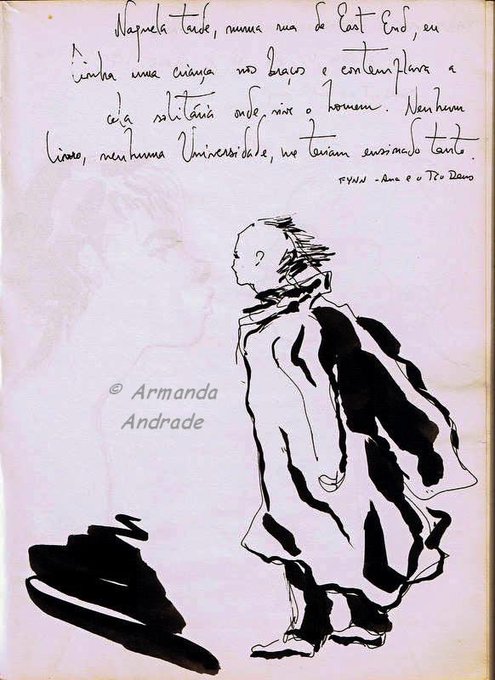 Naquela tarde, numa rua de East End, eu
tinha uma criança nos braços e contemplava a
cela solitária onde vive o homem. Nenhum
livro, nenhuma Universidade, me teriam ensinado tanto.
FYNN - Ana e o Sr. Deus
© Armanda
Andrade